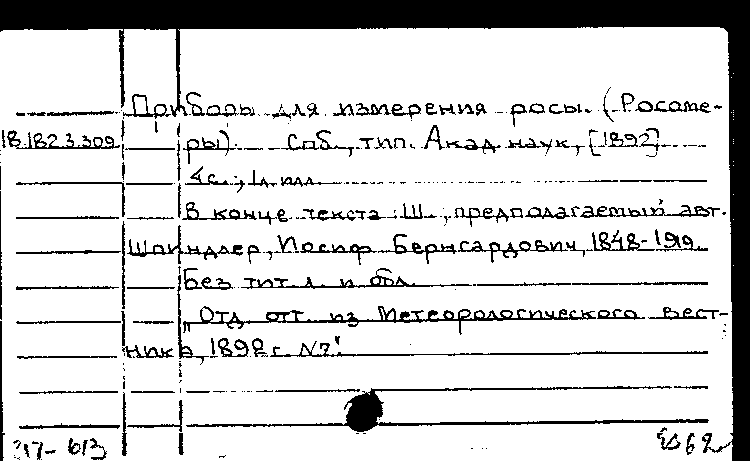 Приборы для измерения росы. (Росоме-
18.182.3.309 ры). Спб., тип. Акад. наук, [1892]
4с.; 1л. илл.
В конце текста: Ш., предполагаемый авт.
Шпиндлер, Иосиф Бернгардович, 1848-1919
Без тит. л. и обл.
"Отд. отт. из Метеорологического вест-
ника, 1892 г. №7".
17-613
62